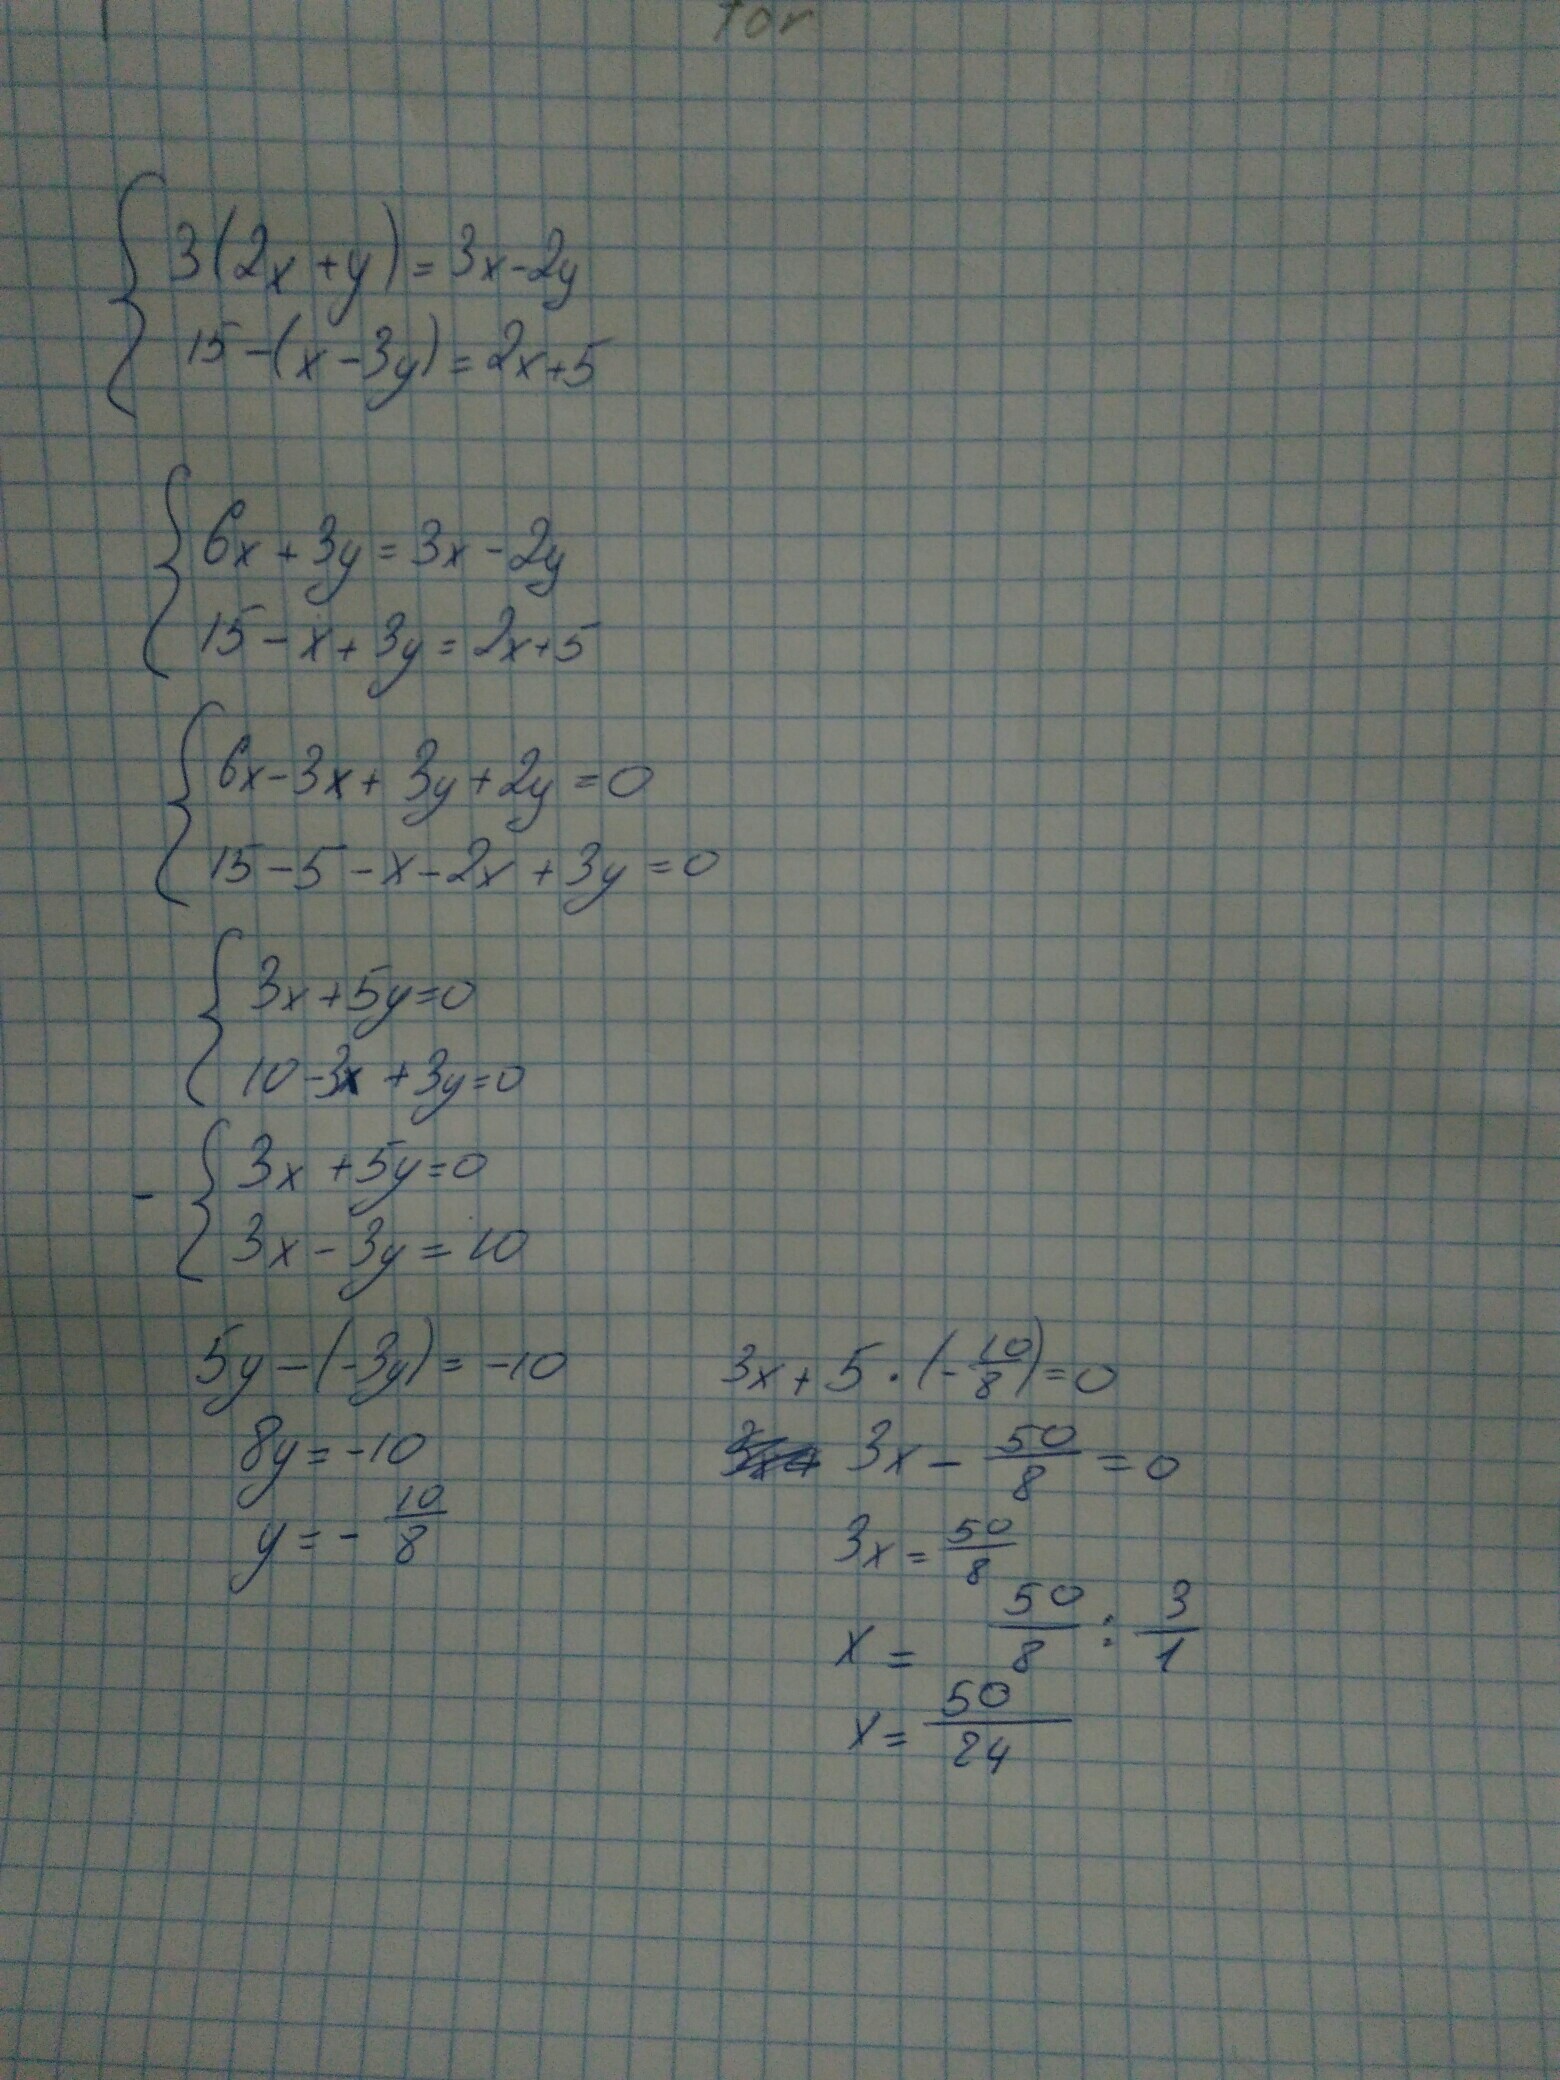 for
3(2x+y)=3x-2y
15-(x-3y)=2x+5
6x+3y=3x-2y
15-x+3y=2x+5
6x-3x+3y+2y=0
15-5-x-2x+3y=0
3x+5y=0
10-3x+3y=0
3x+5y=0
-
3x-3y=10
5y-(-3y)=-10
8y=-10
y=-10/8
3x+5·(-10/8)=0
3x-50/8=0
3x=50/8
x=50/8:3/1
x=50/24